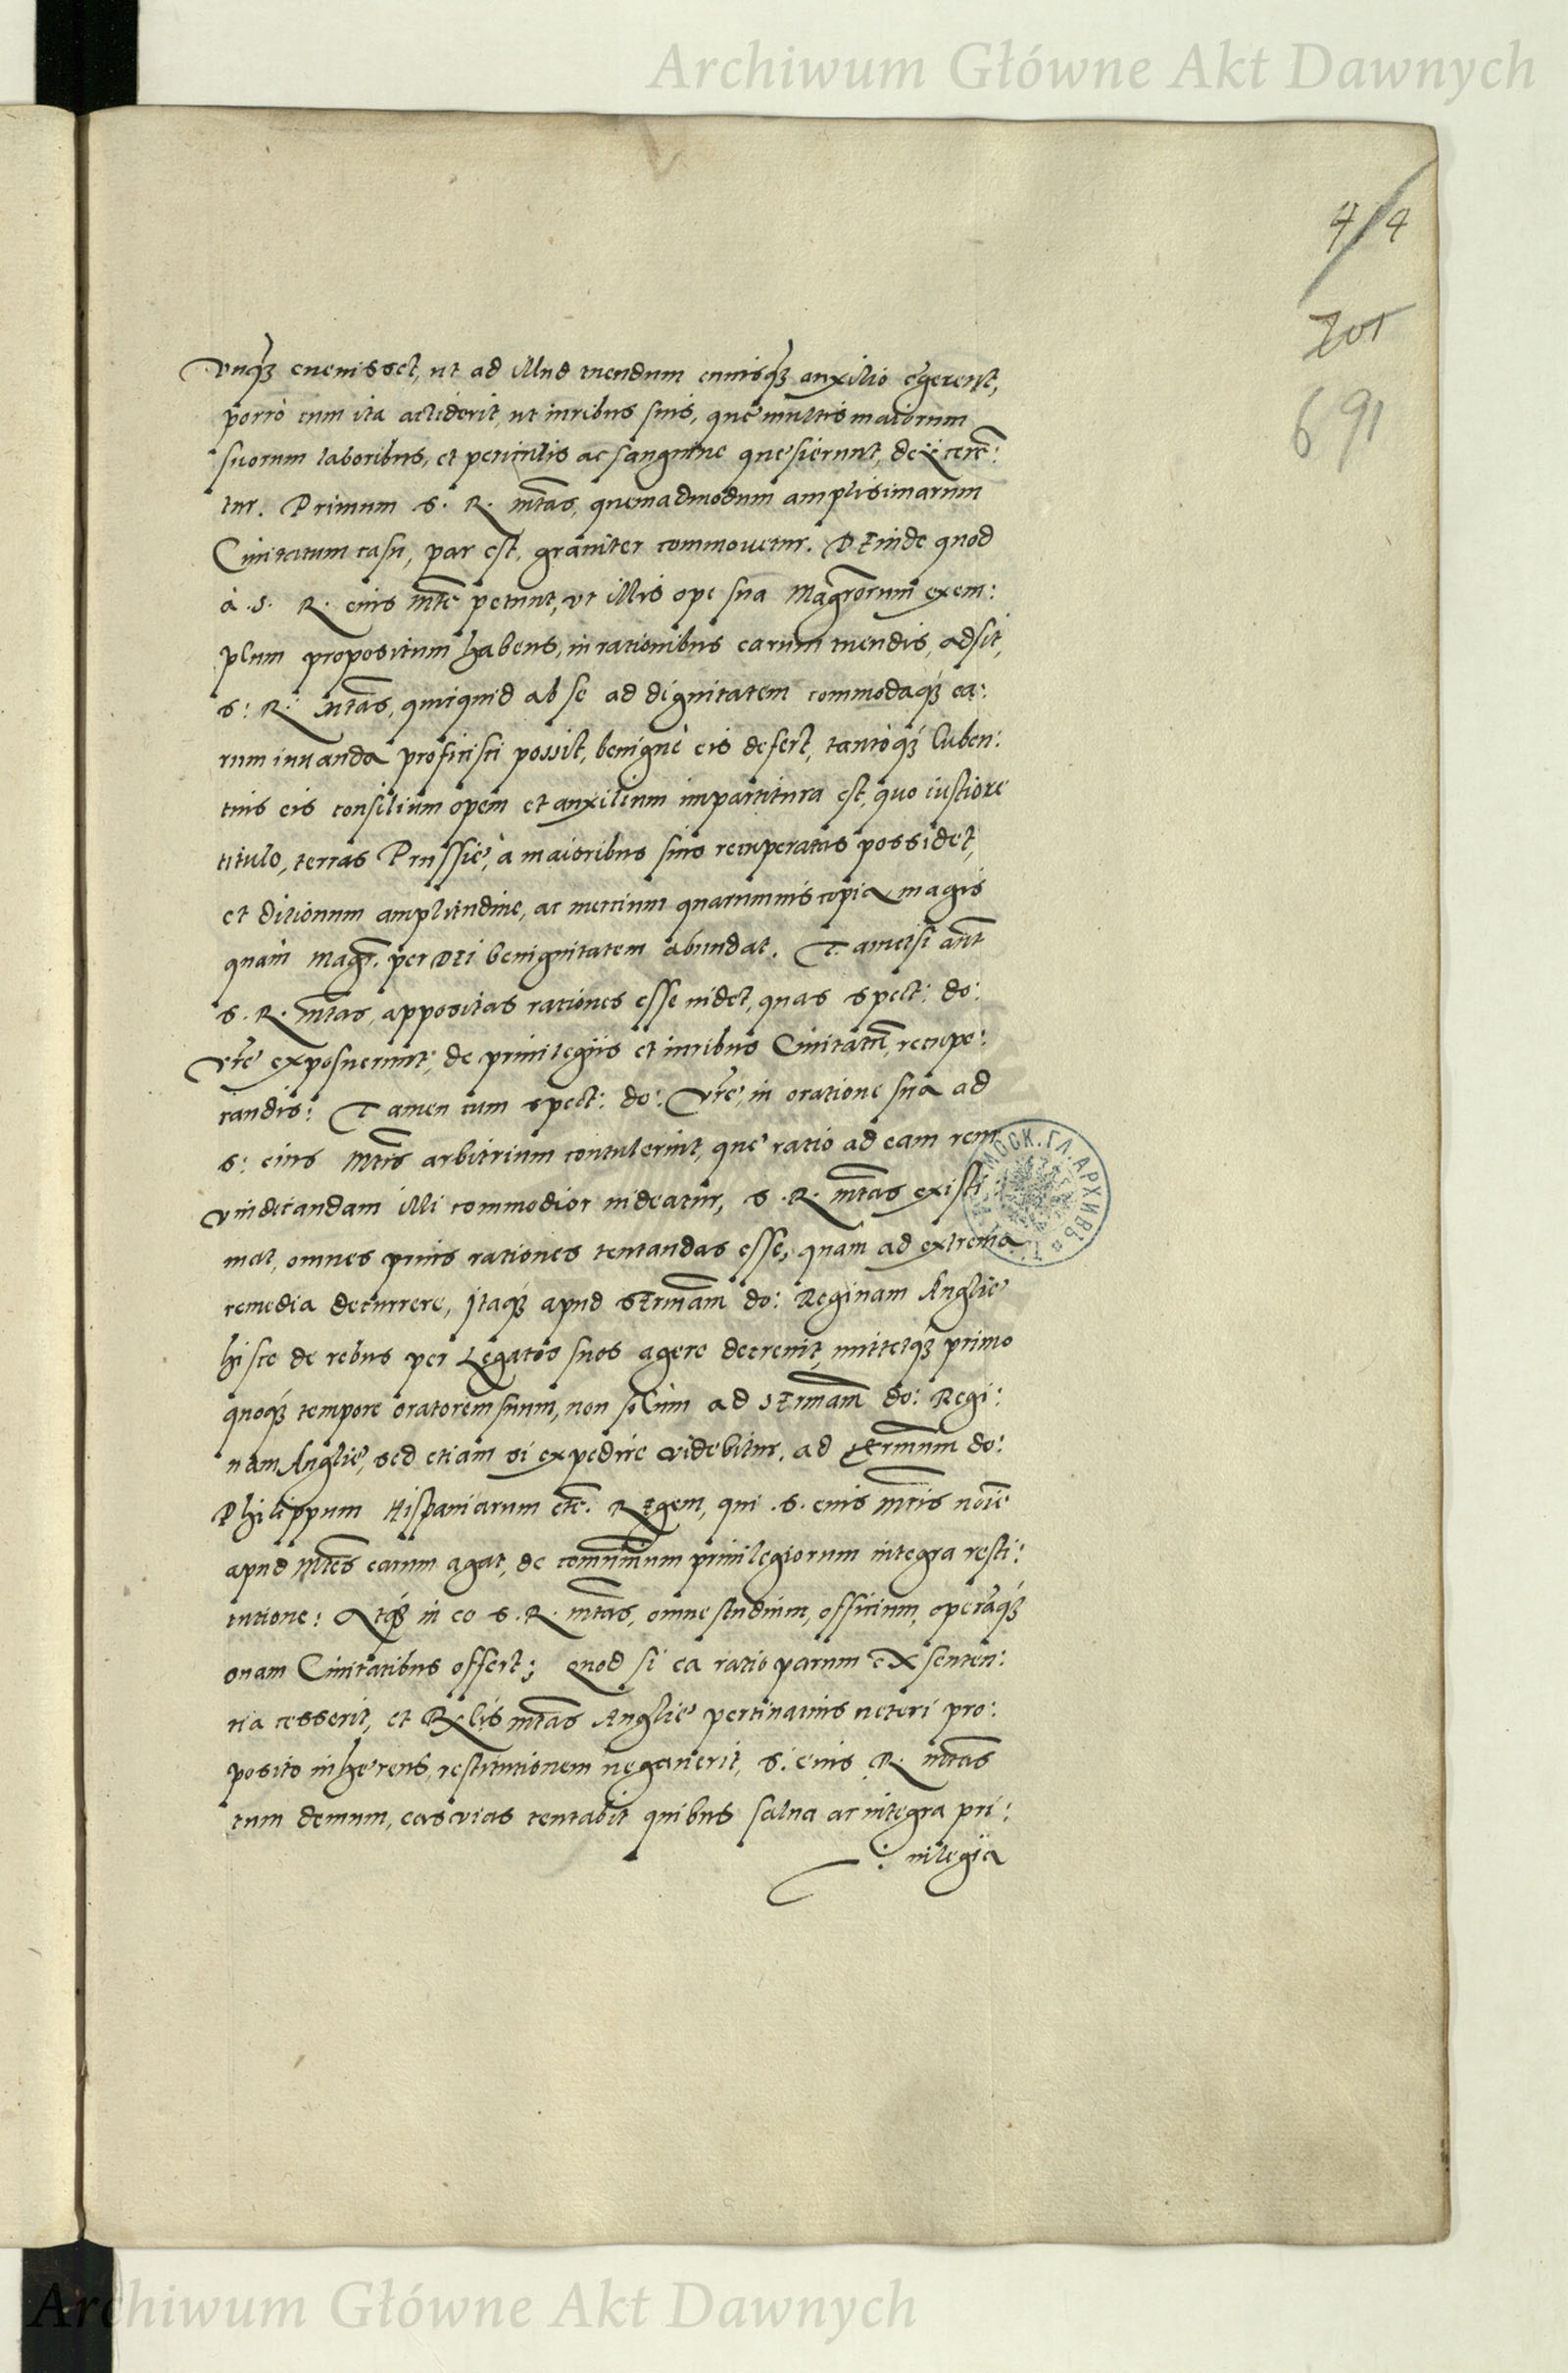 Archiwum Główne Akt Dawnych
4/4
201
691
Vnq́ꝫ euenisset, ut ad illud tuendum cuiusq́ꝫ auxilio egerent,
porrò cum ita acciderit, ut iuribus suis, quę multis maiorum
suorum laboribus, et periculis ac sanguine quęsierunt, deijcerē:
tur. Primum S. R. mtas, quemadmodum amplisimarum
Ciuitatum casu, par est, grauiter commouetur. DEinde quod
à .S. R. eius Mte petunt, vt illis ope sua Magrorum exem:
plum propositum habens, in rationibus earum tuendis, adsit,
S: R: Mtas, quicquid ab se ad dignitatem commodaq́ꝫ ea:
rum iuuanda proficisci possit, benignè eis defert, tantòq́ꝫ luben:
tius eis consilium opem et auxilium impartitura est, quo iustiore
titulo, terras Prussię, à maioribus suis recuperatas possidet,
et ditionum amplitudine, ac mercium quarumuis copia magis
quàm Magr. per DEi benignitatem abundat. Tametsi aūt
S. R. Mtas, appositas rationes esse uidet, quas Spect: do:
Vrę exposuerunt, de priuilegijs et iuribus Ciuitatū, recupe:
randis: Tamen cum Spect: do: Vrę, in oratione sua ad
S: eius Mtis arbitrium contulerint, quę ratio ad eam rem
vindicandam illi commodior uideatur, S .R. mtas existi:
mat, omnes prius rationes tentandas esse, quam ad extrema
remedia decurrere, Itaq́ꝫ apud SErmam do: Reginam Anglię
hisce de rebus per Legatos suos agere decreuit, mittetq́ꝫ primo
quoq́ꝫ tempore oratorem suum, non solùm ad SErmam do: Regi:
nam Anglię, sed etiam si expedire videbitur, ad SErmum do:
Philippum Hispaniarum etc. REgem, qui .S. eius Mtis noīe
apud Mtes earum agat, de communium priuilegiorum integra resti:
tutione: Atq́ꝫ in eo S. R. mtas, omne studium, officium, operāq́ꝫ
suam Ciuitatibus offert; Quod si ea ratio parum ex senten:
tia cesserit, et Rlis mtas Anglię pertinatius ueteri pro:
posito inhęrens, restitutionem negauerit, S: eius R. mtas
tum demum, eas vias tentabit quibus salua ac integra pri:
uilegia
МОСК. ГЛ. АРХИВЪ
Archiwum Główne Akt Dawnych